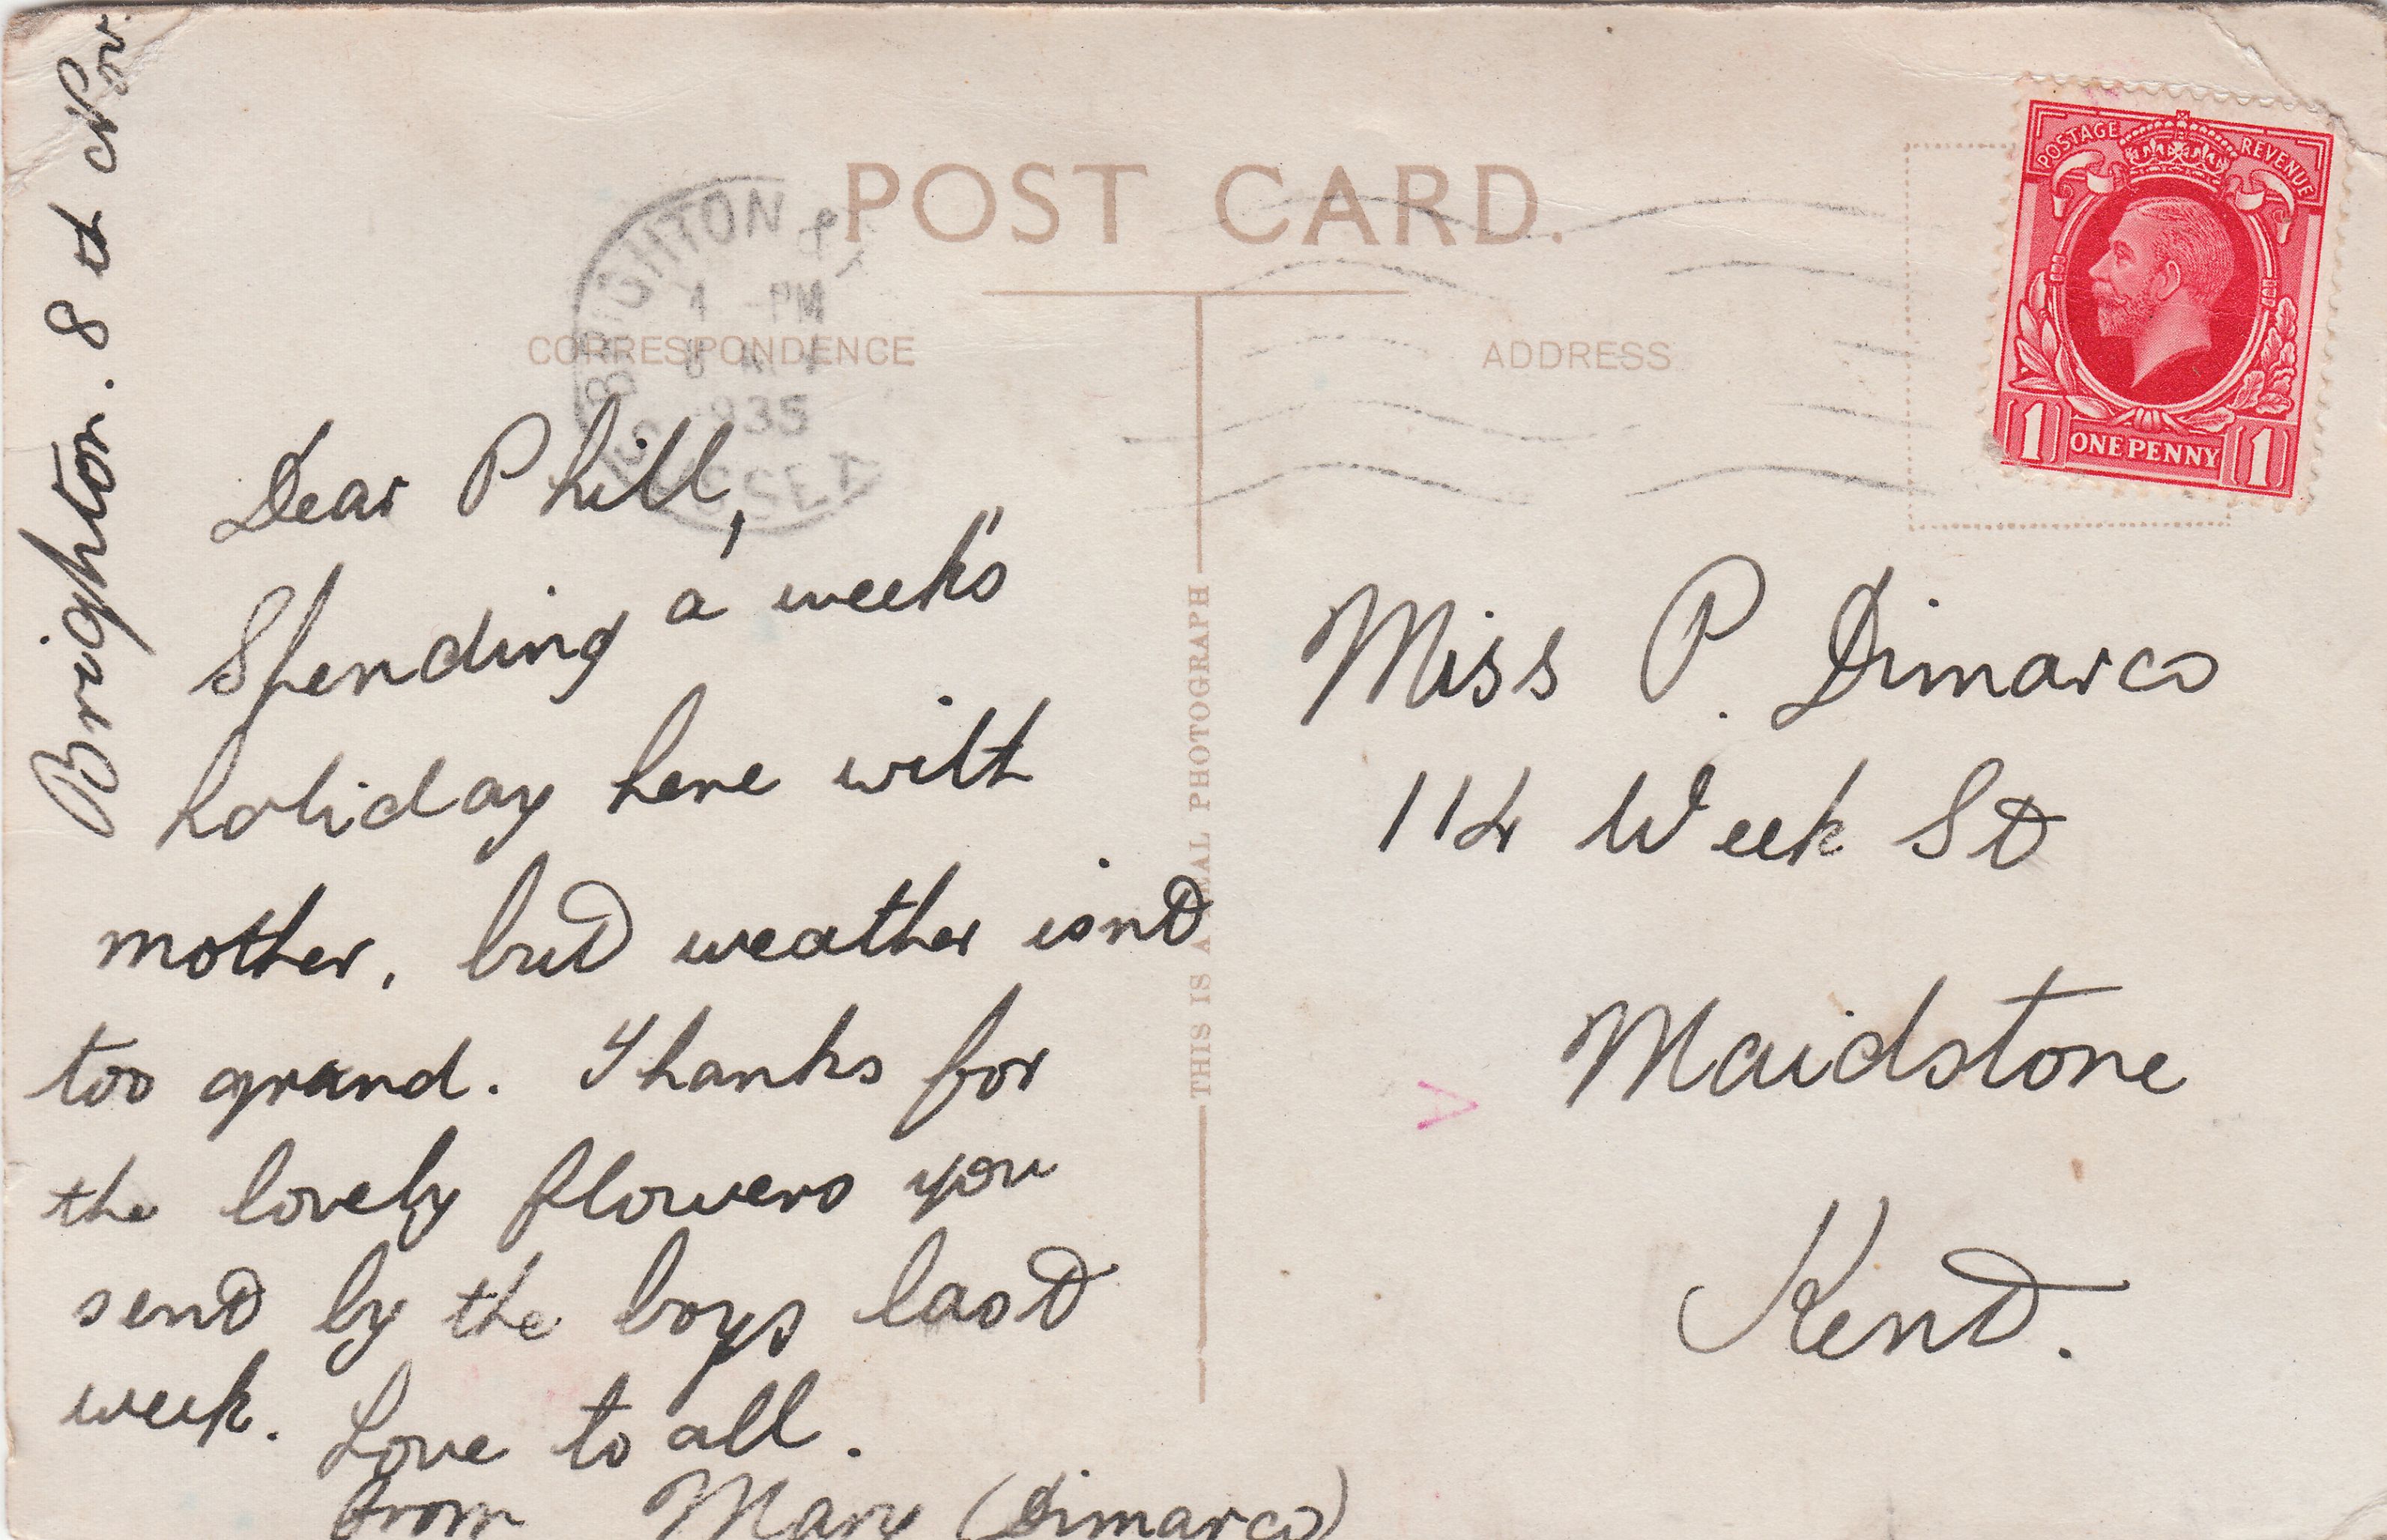 POST CARD.
CORRESPONDENCE
ADDRESS
THIS IS A REAL PHOTOGRAPH
POSTAGE REVENUE
1 ONE PENNY 1
BRIGHTON &
PM
8
935
SUSSEX
Brighton. 8th Nov.
Dear Phill,
Spending a week's
holiday here with
mother, but weather isnt
too grand. Thanks for
the lovely flowers you
sent by the boys last
week. Love to all.
from Mary (Dimarco)
Miss P. Dimarco
114 Week St
Maidstone
Kent.